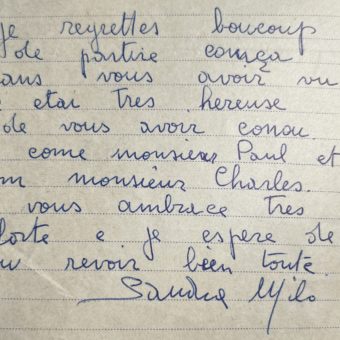 je regrettes boucoup
de partire comça
sans vous avoir vu
etai tres hereuse
de vous avoir conou
come monsieur Paul et
monsieur Charles.
vous ambrace tres
forte e je espere de
revoir bien toute
Sandra Milo